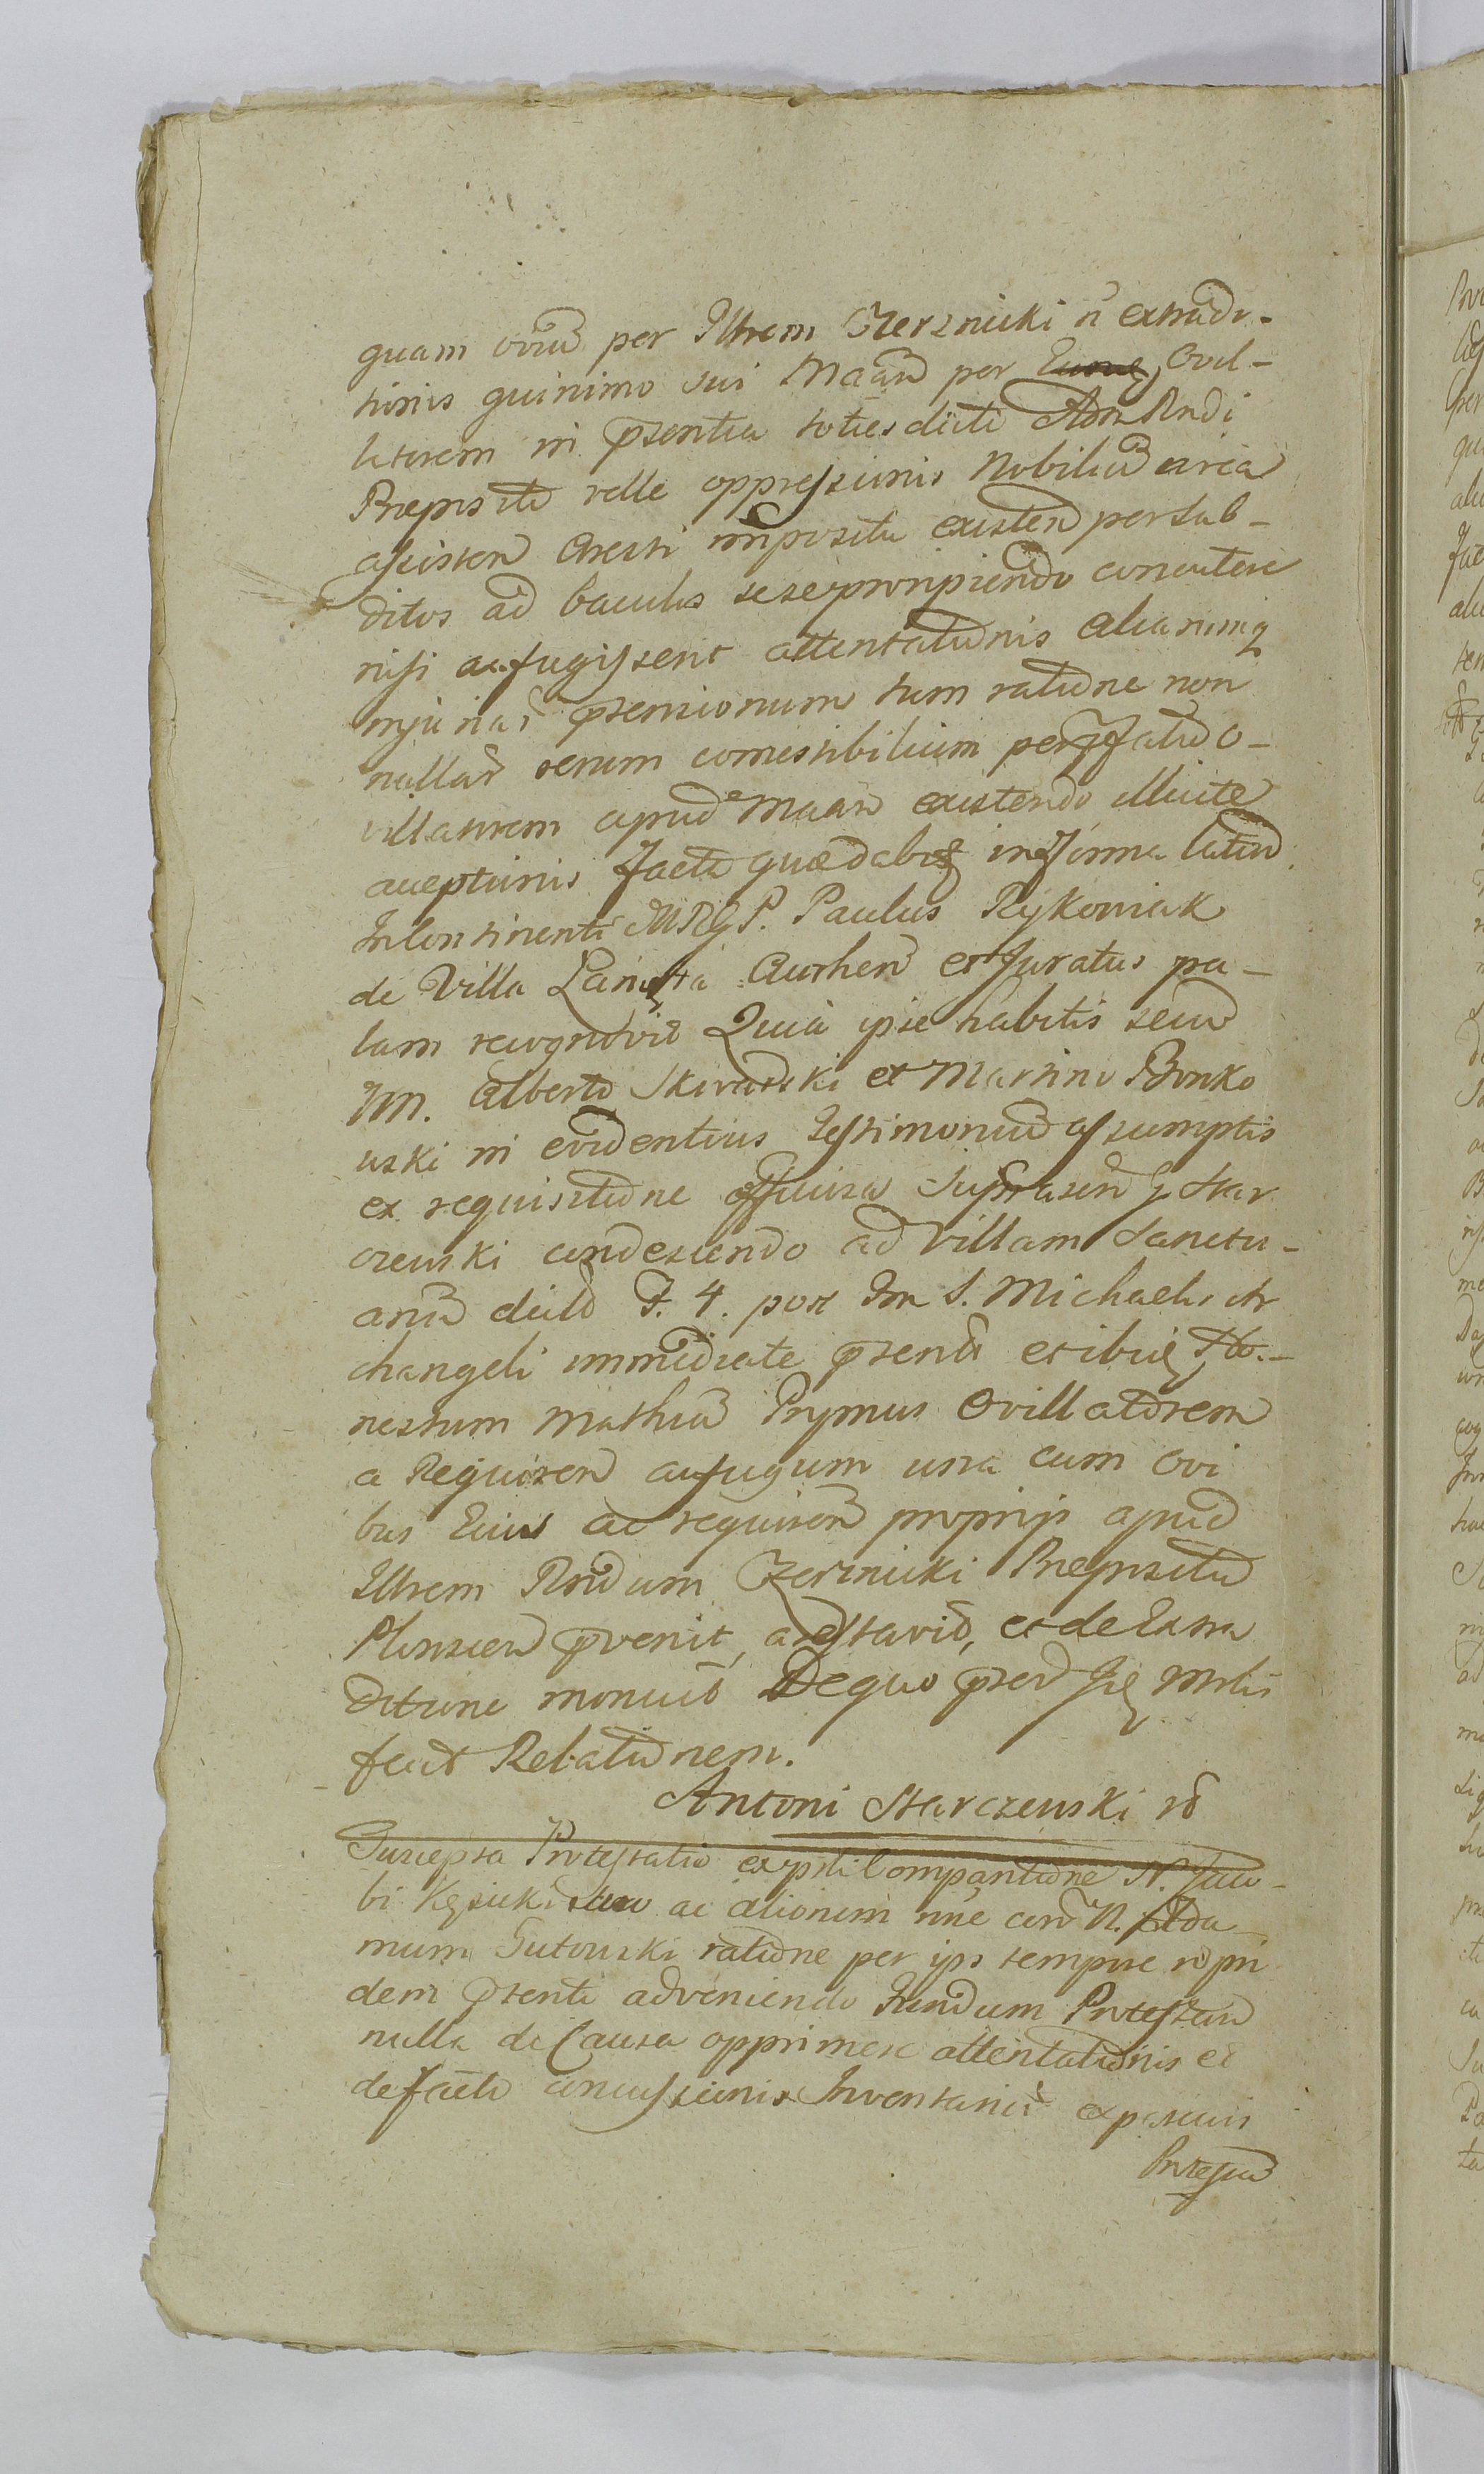 quam oviũ per Illrem Czerznicki ñ extradi-
tionis quinimo sui Maãm per Ovil-
latorem in pñsentia toties dicti Adm Rndi
Praepositi velle oppressionis Nobiliũ circa
assisten Aresti impositi existen per sub-
ditos ad baculos sese proripiendo concutere
nisi aufugissent attentationis aliarumq
injuriar pñsensionum tum ratione non
nullar rerum comestibilium per O-
villatorem apud Maãm existendo illicite
acceptionis facti quaedabit in forma latiũ
Incontinenti MRGP. Paulus Rykowiak
de Villa Łanięta Authen et Juratus pa-
lam recognovit Quia ipse habitis secũ
NN. Alberto Skwarski et Martino Bonko
wski in evidentius Testimoniũ assumptis
ex requisitione officiosa Suprasen G Star
czewski condescendo ad Villam Sanctu-
ariũ dictã F. 4. post Fm S. Michaelis Ar
changeli immediate pñsenti et ibiq Ho-
nestum Mathiã Prymus Ovillatorem
a Requiren aufugum una cum ovi
bus Eius ac requiren proprijs apud
Illrem Rndum Czerznicki Praepositũ
Plonscen pvenit, arestavit, et de Extra
ditione monuit De quo pñsen Jiĕ Mnlis
fecit Relationem.
Antoni Starczewski
Suscepta Protestatio ex psli Compantione N. Jaco-
bi Kęsicki suo ac alionim nñe con N. Ada
mum Gutowski ratione per ipsũ tempore ñ pri
dem pñsenti adveniendo fundum Protestan
nulla de Causa opprimere attentationis et
de facto concussionis Inventarior
Protestan